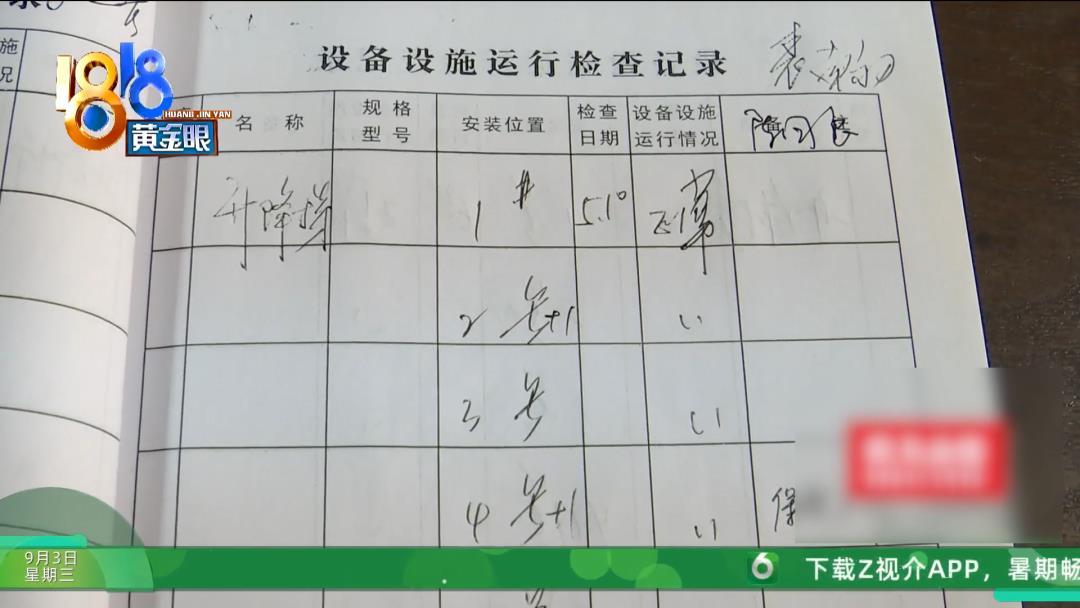 1818
HUANG JIN YAN
黄金眼
施
况
设备设施运行检查记录
名 称
规 格
型 号
安装位置
检查
日期
设备设施
运行情况
升降梯
1#
5.10
正常
2号+1
3号
4号+1
保
9月3日
星期三
6
下载Z视介APP，暑期畅